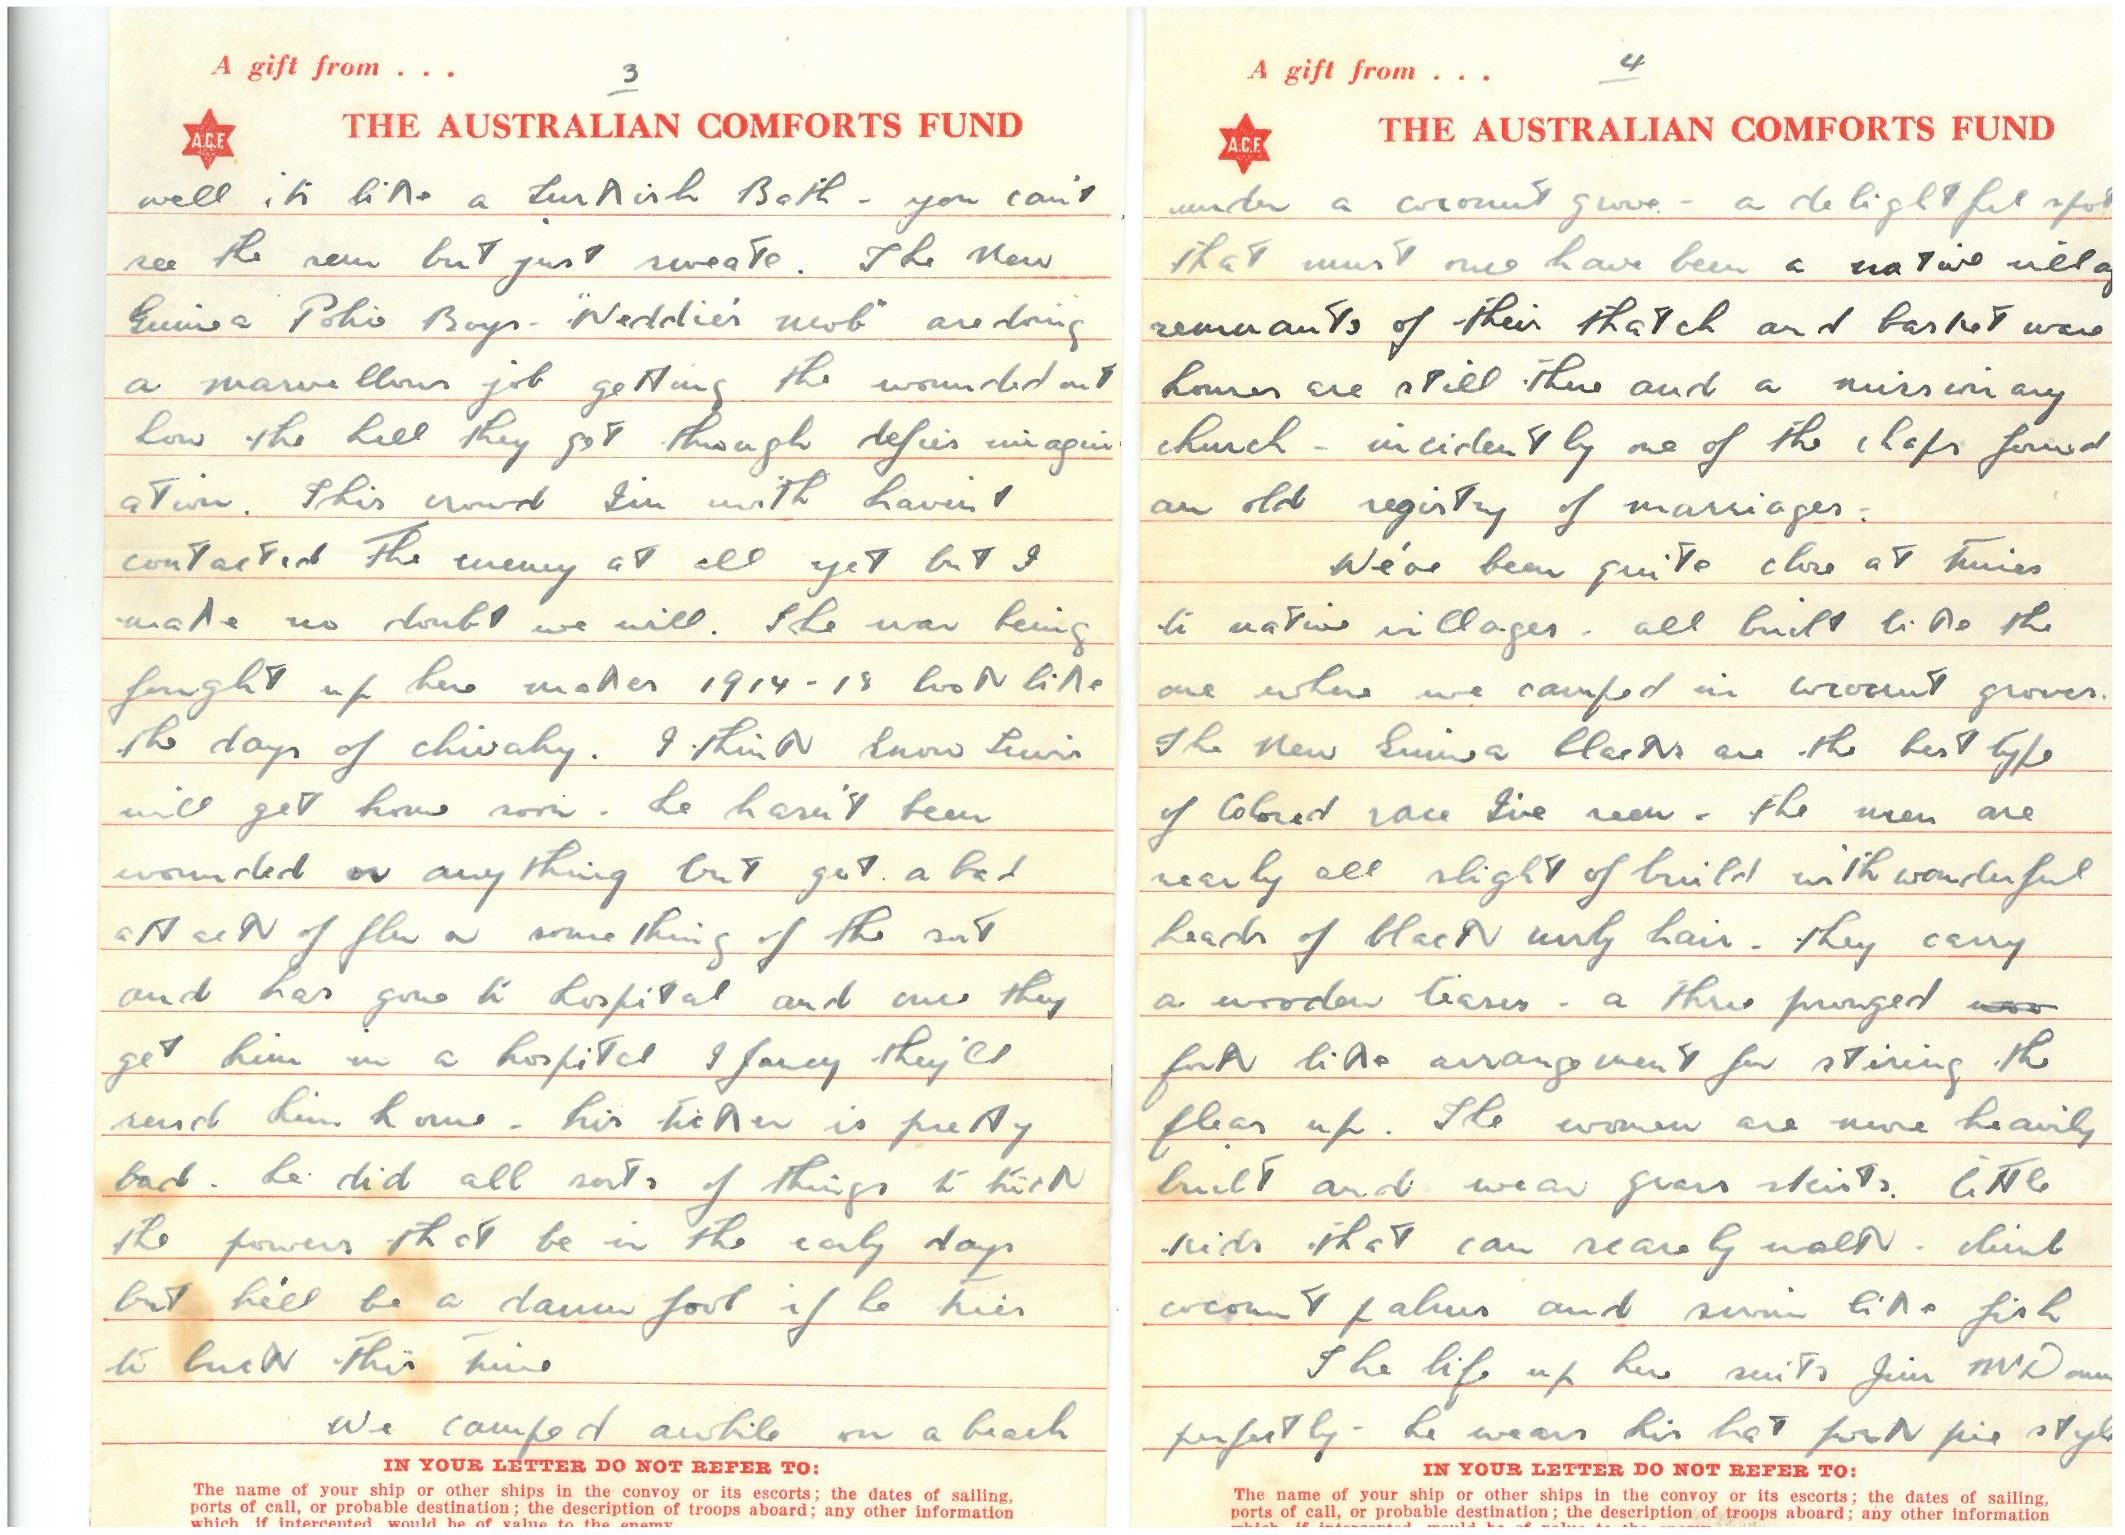 A gift from . . .
3
A.C.F.
THE AUSTRALIAN COMFORTS FUND
well its like a Turkish Bath - you can't
see the sun but just sweate. The New
Guinea Polie Boys - "Neddie's mob" are doing
a marvellous job getting the wounded out
how the hell they get through defies imagin
ation. This crowd I'm with haven't
contacted the enemy at all yet but I
make no doubt we will. The war being
fought up here makes 1914-18 look like
the days of chivalry. I think Snow Lewis
will get home soon - he hasn't been
wounded or anything but got a bad
attack of flu or something of the sort
and has gone to hospital and once they
get him in a hospital I fancy they'll
send him home - his ticker is pretty
bad - he did all sorts of things to trick
the powers that be in the early days
but he'll be a damn fool if he tries
to buck this time
We camped awhile on a beach
IN YOUR LETTER DO NOT REFER TO:
The name of your ship or other ships in the convoy or its escorts; the dates of sailing,
ports of call, or probable destination; the description of troops aboard; any other information
which, if intercepted, would be of value to the enemy.
A gift from . . .
4
A.C.F.
THE AUSTRALIAN COMFORTS FUND
under a coconut grove - a delightful spot
that must once have been a native villag
remnants of their thatch and basket ware
houses are still there and a missionary
church - incidently one of the chaps found
an old registry of marriages.
We've been quite close at times
to native villages - all built like the
one where we camped in coconut groves.
The New Guinea blacks are the best type
of Colored race I've seen - the men are
nearly all slight of build with wonderful
heads of black curly hair - they carry
a wooden teaser - a three pronged woo
fork like arrangement for stiring the
fleas up. The women are more heavily
built and wear grass skirts. Little
kids that can scarely walk - climb
coconut palms and swim like fish
The life up here suits Jim McD
perfectly - he wears his hat pork pie style
IN YOUR LETTER DO NOT REFER TO:
The name of your ship or other ships in the convoy or its escorts; the dates of sailing,
ports of call, or probable destination; the description of troops aboard; any other information
which, if intercepted, would be of value to the enemy.